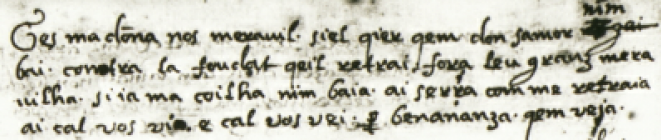 nim
Ges ma dõna nos meravil. siel qier qem don samor
bai. contra la foudat qeil retrai. fora leu granz mera
vilha. si ia ma coilha nim baia. ai serra com me retraia
ai cal vos via e cal vos vei. ꝑ benananza. qem veja.